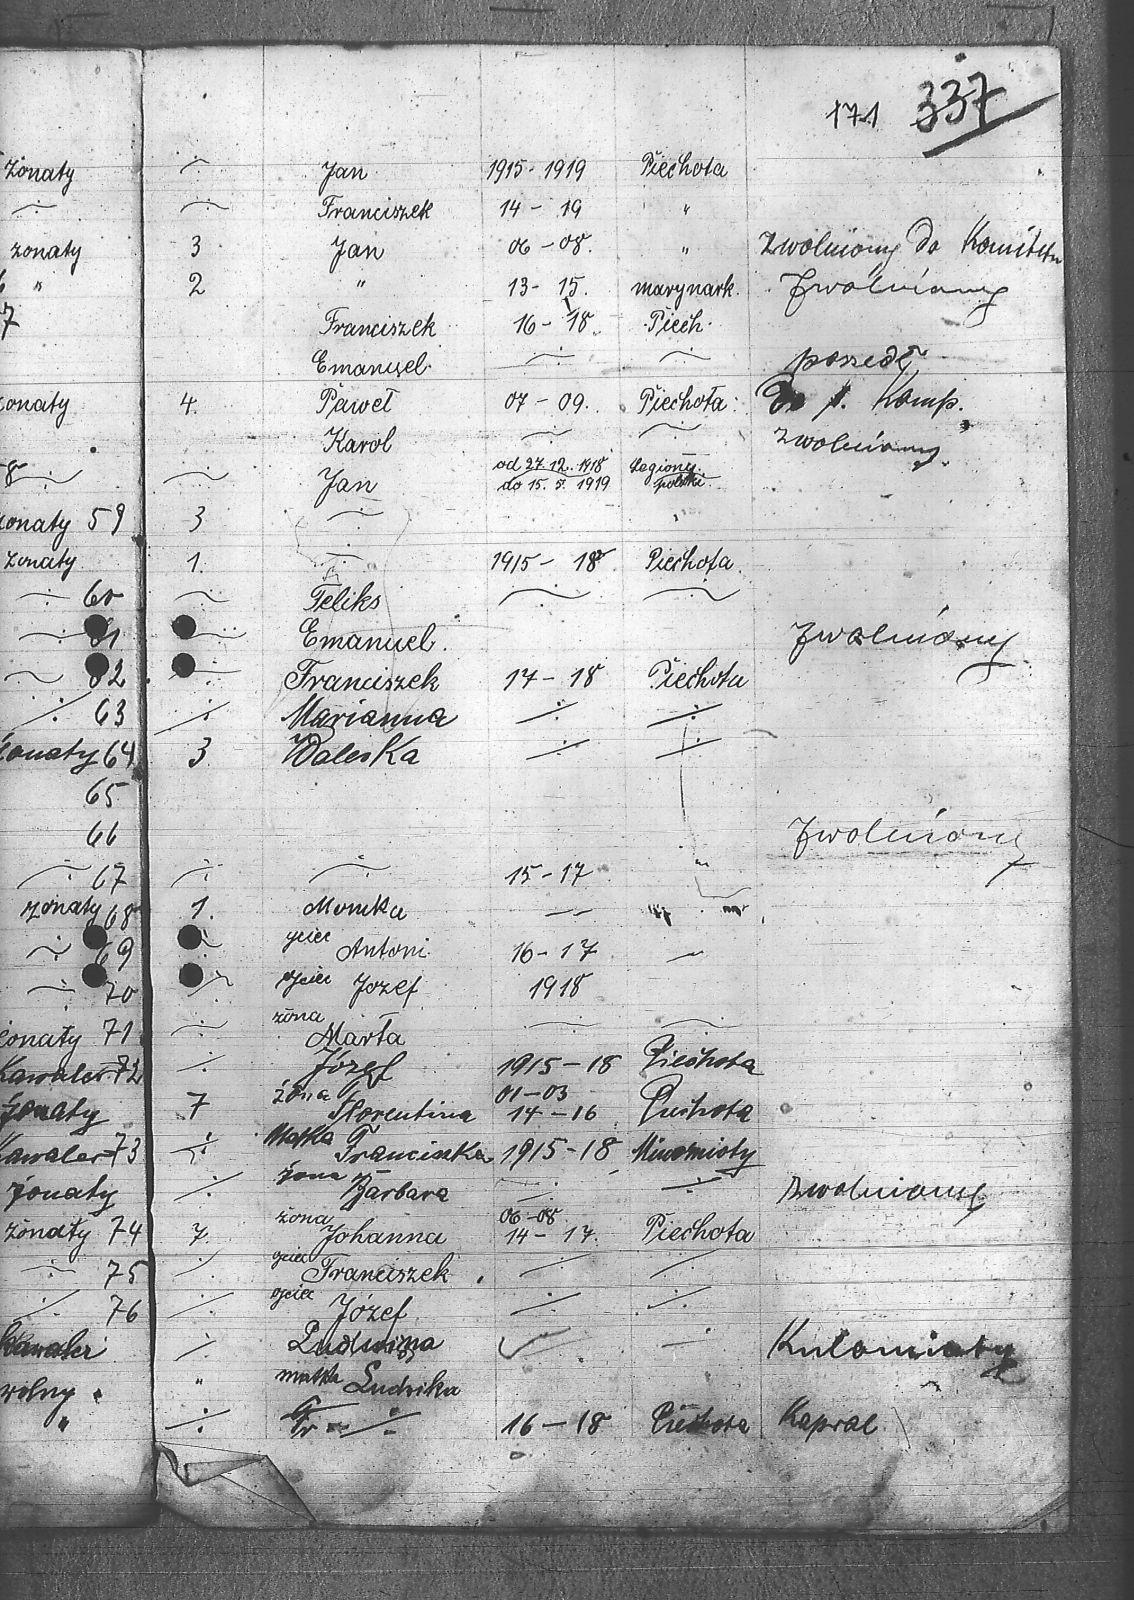 171 337
żonaty Jan 1915-1919 Piechota
Franciszek 14-19 "
żonaty 3 Jan 06-08. " Zwolniony do Komitetu
" 2 " 13-15. marynark. Zwolniony
7 Franciszek 16-18. Piech.
Emanuel. poszedł
żonaty 4. Paweł 07-09. Piechota: Do 1. Komp.
Karol Zwolniony
8 Jan od 27.12.1918 do 15.5.1919 Legiony polski
żonaty 59 3
żonaty 1. 1915-18 Piechota.
60 Feliks
61 Emanuel. Zwolniony
62 Franciszek 17-18 Piechota
63 Marianna
żonaty 64 3 Waleska
65
66 Zwolniony
67 15-17 "
żonaty 68 1. Monika
69 ojciec Antoni 16-17
70 ojciec Jozef 1918
żonaty 71 żona Marta
Kawaler 72 Józef 1915-18 Piechota
żonaty 7 żona Florentina 01-03 14-16 Piechota
Kawaler 73 Matka Franciszka 1915-18 Minomioty
żonaty żona Barbara Zwolniony
żonaty 74 7. żona Johanna 06-08 14-17. Piechota
75 ojciec Franciszek
76 ojciec Józef
Kawaler Ludwina Kulomioty
wolny " matka Ludwika
" 16-18 Piechota Kapral